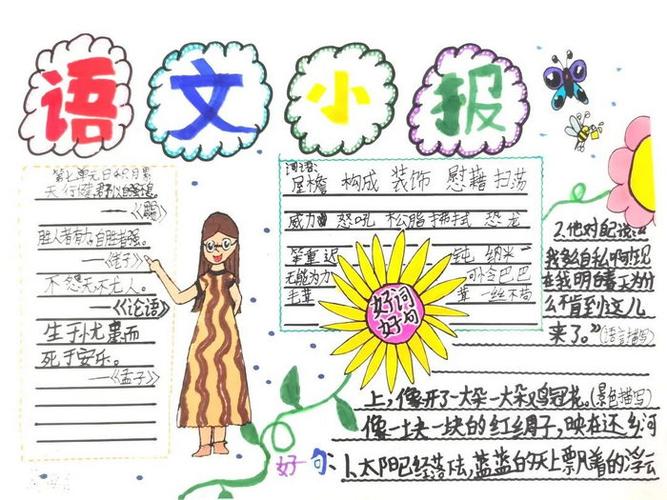 语文小报
第七单元日积月累
天行健,君子以自强不息
——《周易》
胜人者有力,自胜者强。
——《老子》
不怨天,不尤人。
——《论语》
生于忧患而
死于安乐。
——《孟子》
词语:
屋檐 构成 装饰 慰藉 扫荡
威力 怒吼 松脂 拂拭 恐龙
笨重 迟钝 纳米
无能为力 可怜巴巴
毛茸茸 一丝不苟
好词
好句
2.他对自己说:“
我多么自私啊!现
在我明白春天为什
么不肯到这儿
来了。”(语言描写)
好句:1、太阳已经落下去,蓝蓝的天上飘着的浮云
像一块一块的红绸子,映在还乡河
上,像开了一大朵一大朵鸡冠花。(景色描写)